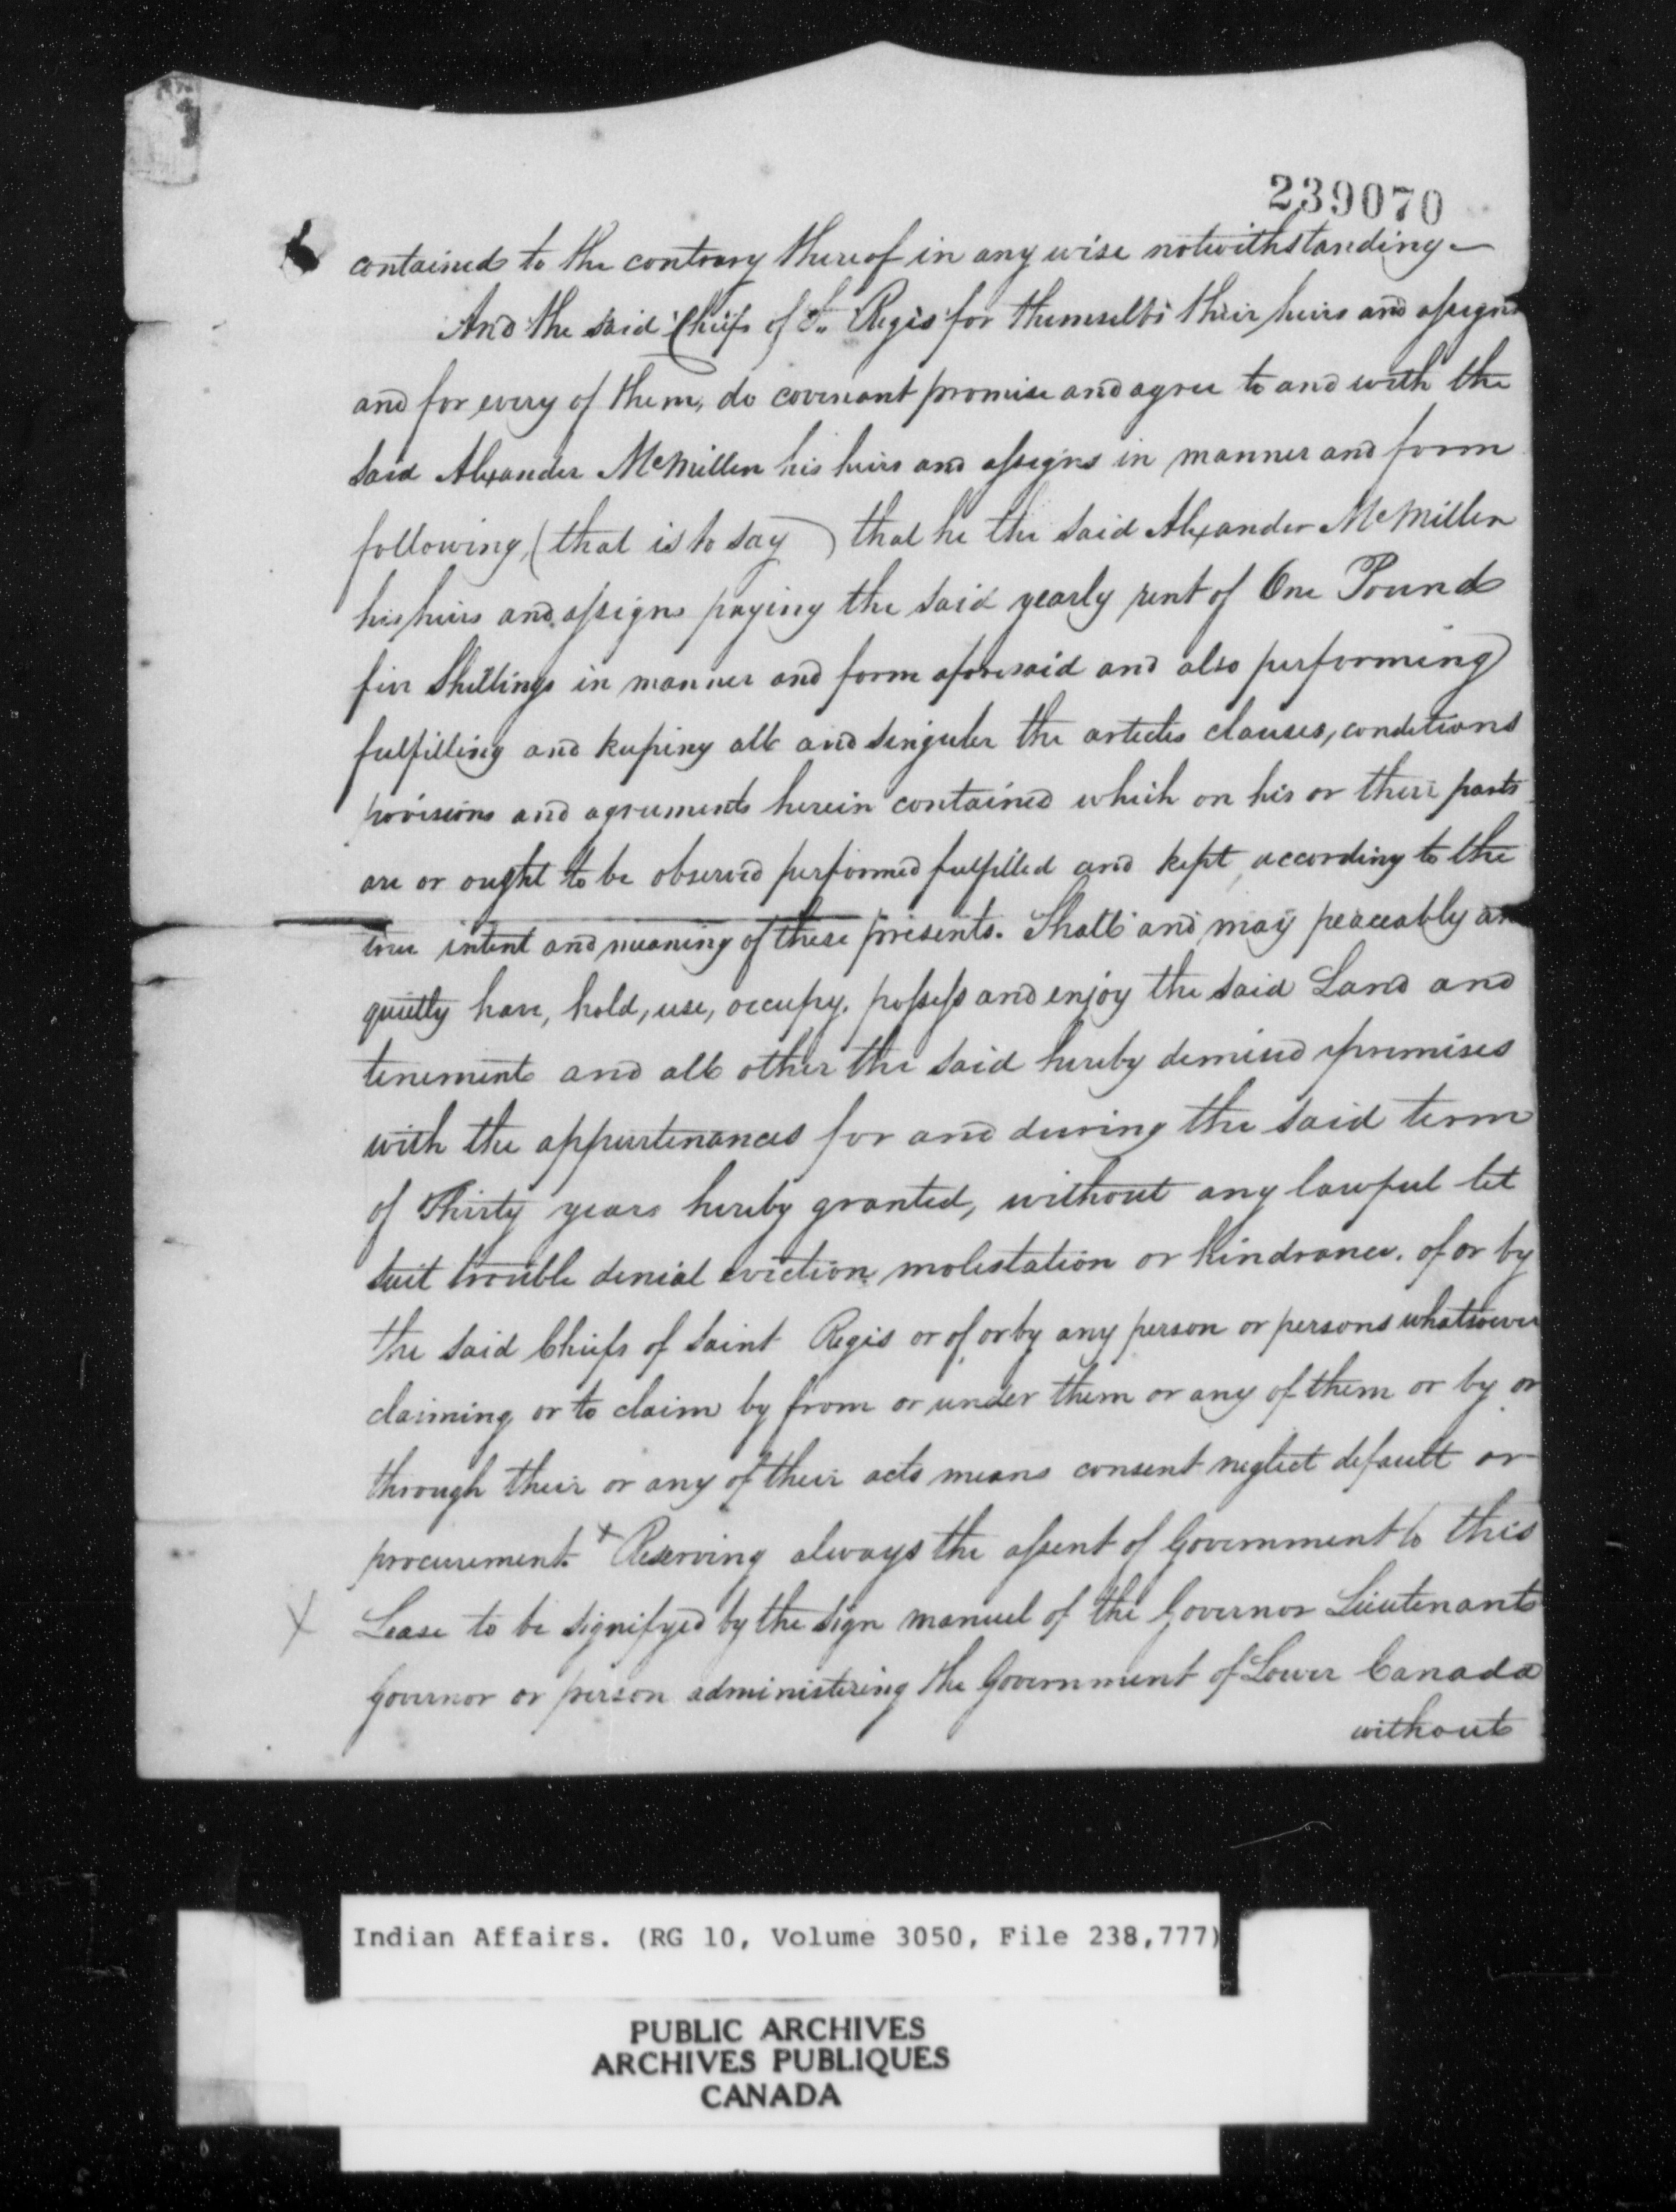 239070
contained to the contrary thereof in any wise notwithstanding –
And the said Chiefs of St. Regis for themselves their heirs and assigns
and for every of them, do covenant promise and agree to and with the
said Alexander McMillen his heirs and assigns in manner and form
following, (that is to say) that he the said Alexander McMillen
his heirs and assigns paying the said yearly rent of One Pound
five Shillings in manner and form aforesaid and also performing
fulfilling and keeping all and singular the articles clauses, conditions
provisions and agreements herein contained which on his or their parts
are or ought to be observed performed fulfilled and kept, according to the
true intent and meaning of these presents. Shall and may peaceably an
quietly have, hold, use, occupy, possess and enjoy the said Land and
tenement and all other the said hereby demised premises
with the appurtenances for and during the said term
of Thirty years hereby granted, without any lawful let
suit trouble denial eviction molestation or hindrance. of or by
the said Chiefs of Saint Regis or of or by any person or persons whatsoever
claiming or to claim by from or under them or any of them or by or
through their or any of their acts means consent neglect default or
procurement. x Reserving always the assent of Government to this
x Lease to be signifyed by the sign manuel of the Governor Lieutenant
Governor or person administering the Government of Lower Canada
without
Indian Affairs. (RG 10, Volume 3050, File 238,777)
PUBLIC ARCHIVES
ARCHIVES PUBLIQUES
CANADA